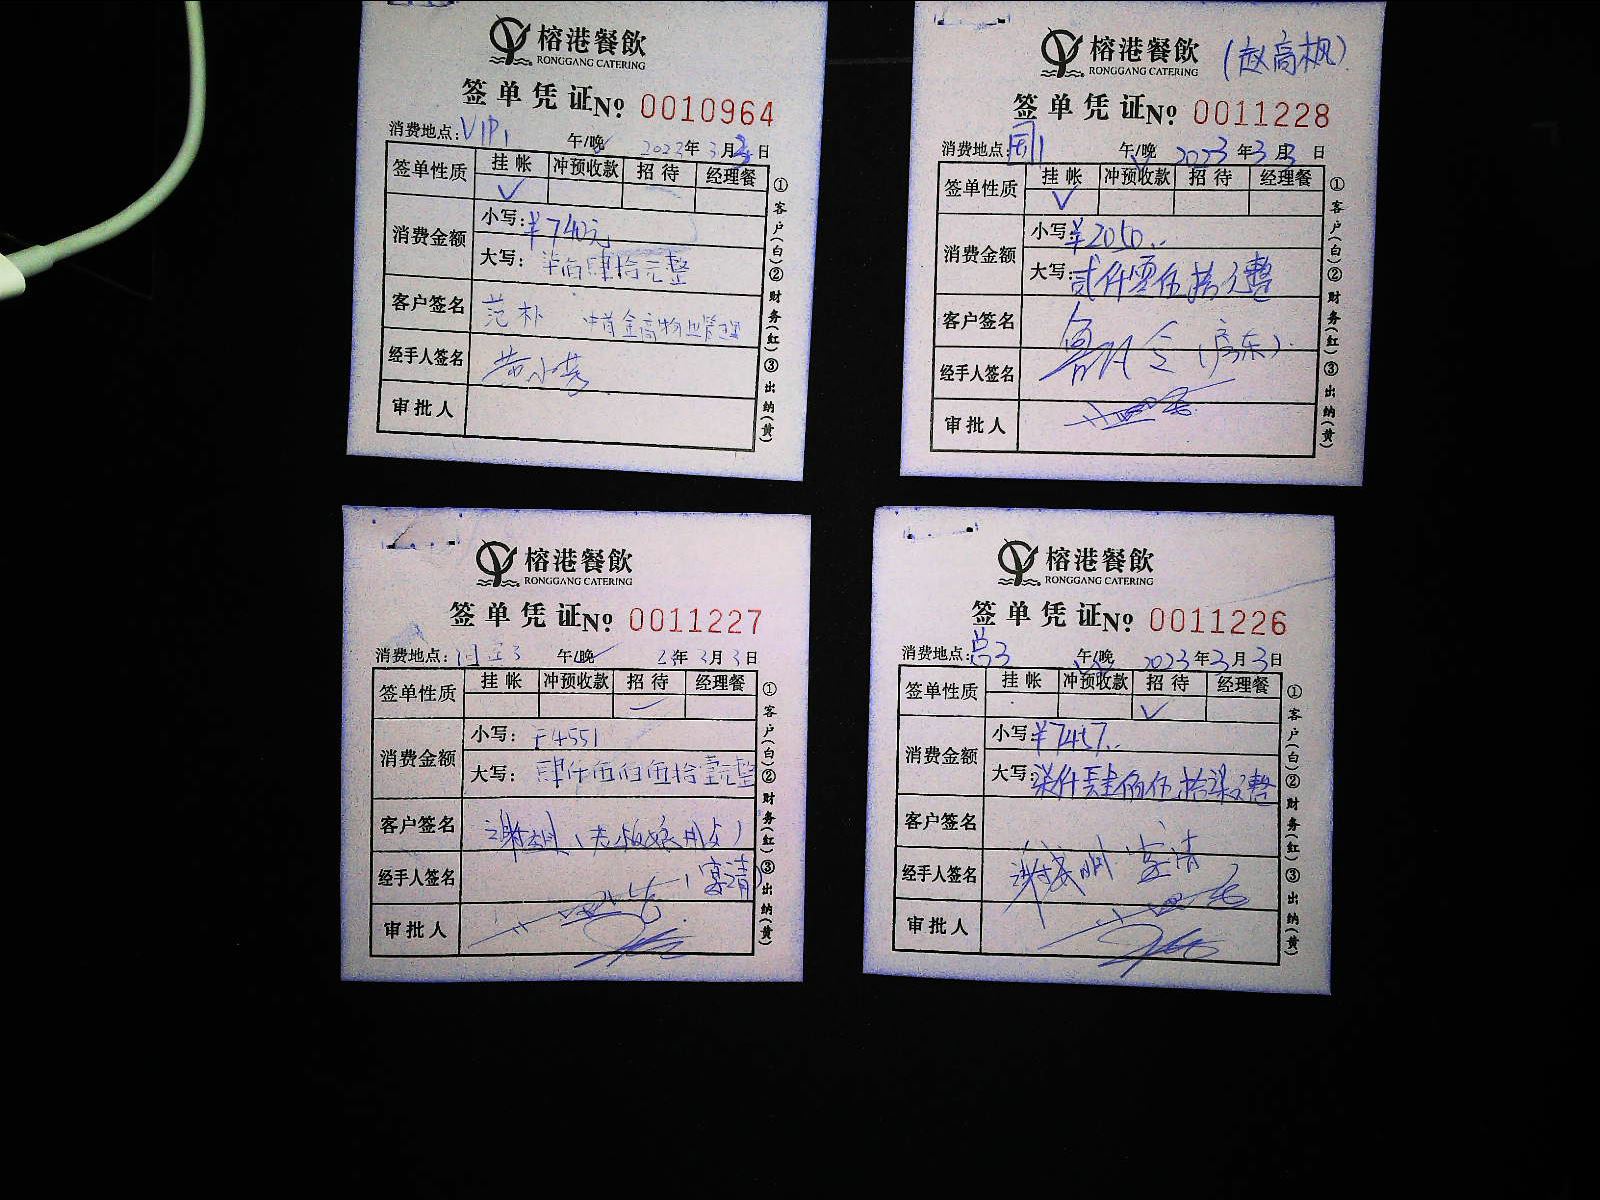 榕港餐飲
RONGGANG CATERING
签单凭证№ 0010964
消费地点：VIP1 午/晚 2023年3月 日
签单性质 挂帐 冲预收款 招待 经理餐
✓
消费金额 小写：¥740元
大写：柒佰肆拾元整
客户签名 范朴 金高物业管理
经手人签名
审批人
①客户(白)②财务(红)③出纳(黄)
榕港餐飲 (赵高枫)
RONGGANG CATERING
签单凭证№ 0011228
消费地点： 午/晚 2023年3月3日
签单性质 挂帐 冲预收款 招待 经理餐
✓
消费金额 小写：¥2050..
大写：贰仟零伍拾元整
客户签名 (房东)
经手人签名
审批人
①客户(白)②财务(红)③出纳(黄)
榕港餐飲
RONGGANG CATERING
签单凭证№ 0011227
消费地点： 午/晚 23年3月3日
签单性质 挂帐 冲预收款 招待 经理餐
消费金额 小写：¥4551
大写：肆仟伍佰伍拾壹元整
客户签名 (老板娘朋友)
经手人签名 (宴请)
审批人
①客户(白)②财务(红)③出纳(黄)
榕港餐飲
RONGGANG CATERING
签单凭证№ 0011226
消费地点： 午/晚 2023年3月3日
签单性质 挂帐 冲预收款 招待 经理餐
✓
消费金额 小写：¥7457..
大写：柒仟肆佰伍拾柒元整
客户签名
经手人签名 宴请
审批人
①客户(白)②财务(红)③出纳(黄)